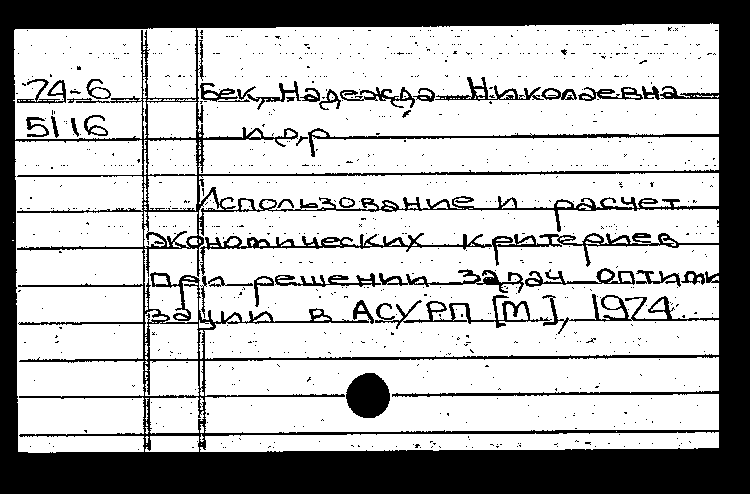 74-6 Бек, Надежда Николаевна
5116 и др
Использование и расчет
экономических критериев
при решении задач оптими
зации в АСУРП [М.], 1974